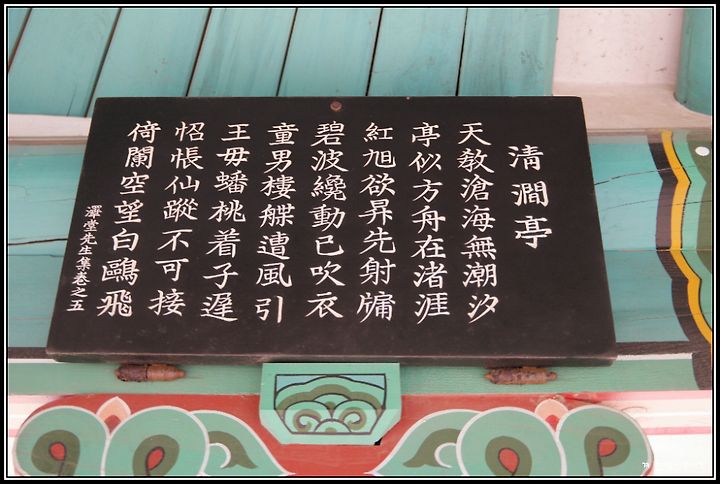 清澗亭
天敎滄海無潮汐
亭似方舟在渚涯
紅旭欲昇先射牖
碧波纔動已吹衣
童男樓艓遭風引
王母蟠桃着子遲
怊悵仙蹤不可接
倚闌空望白鷗飛
澤堂先生集卷之五